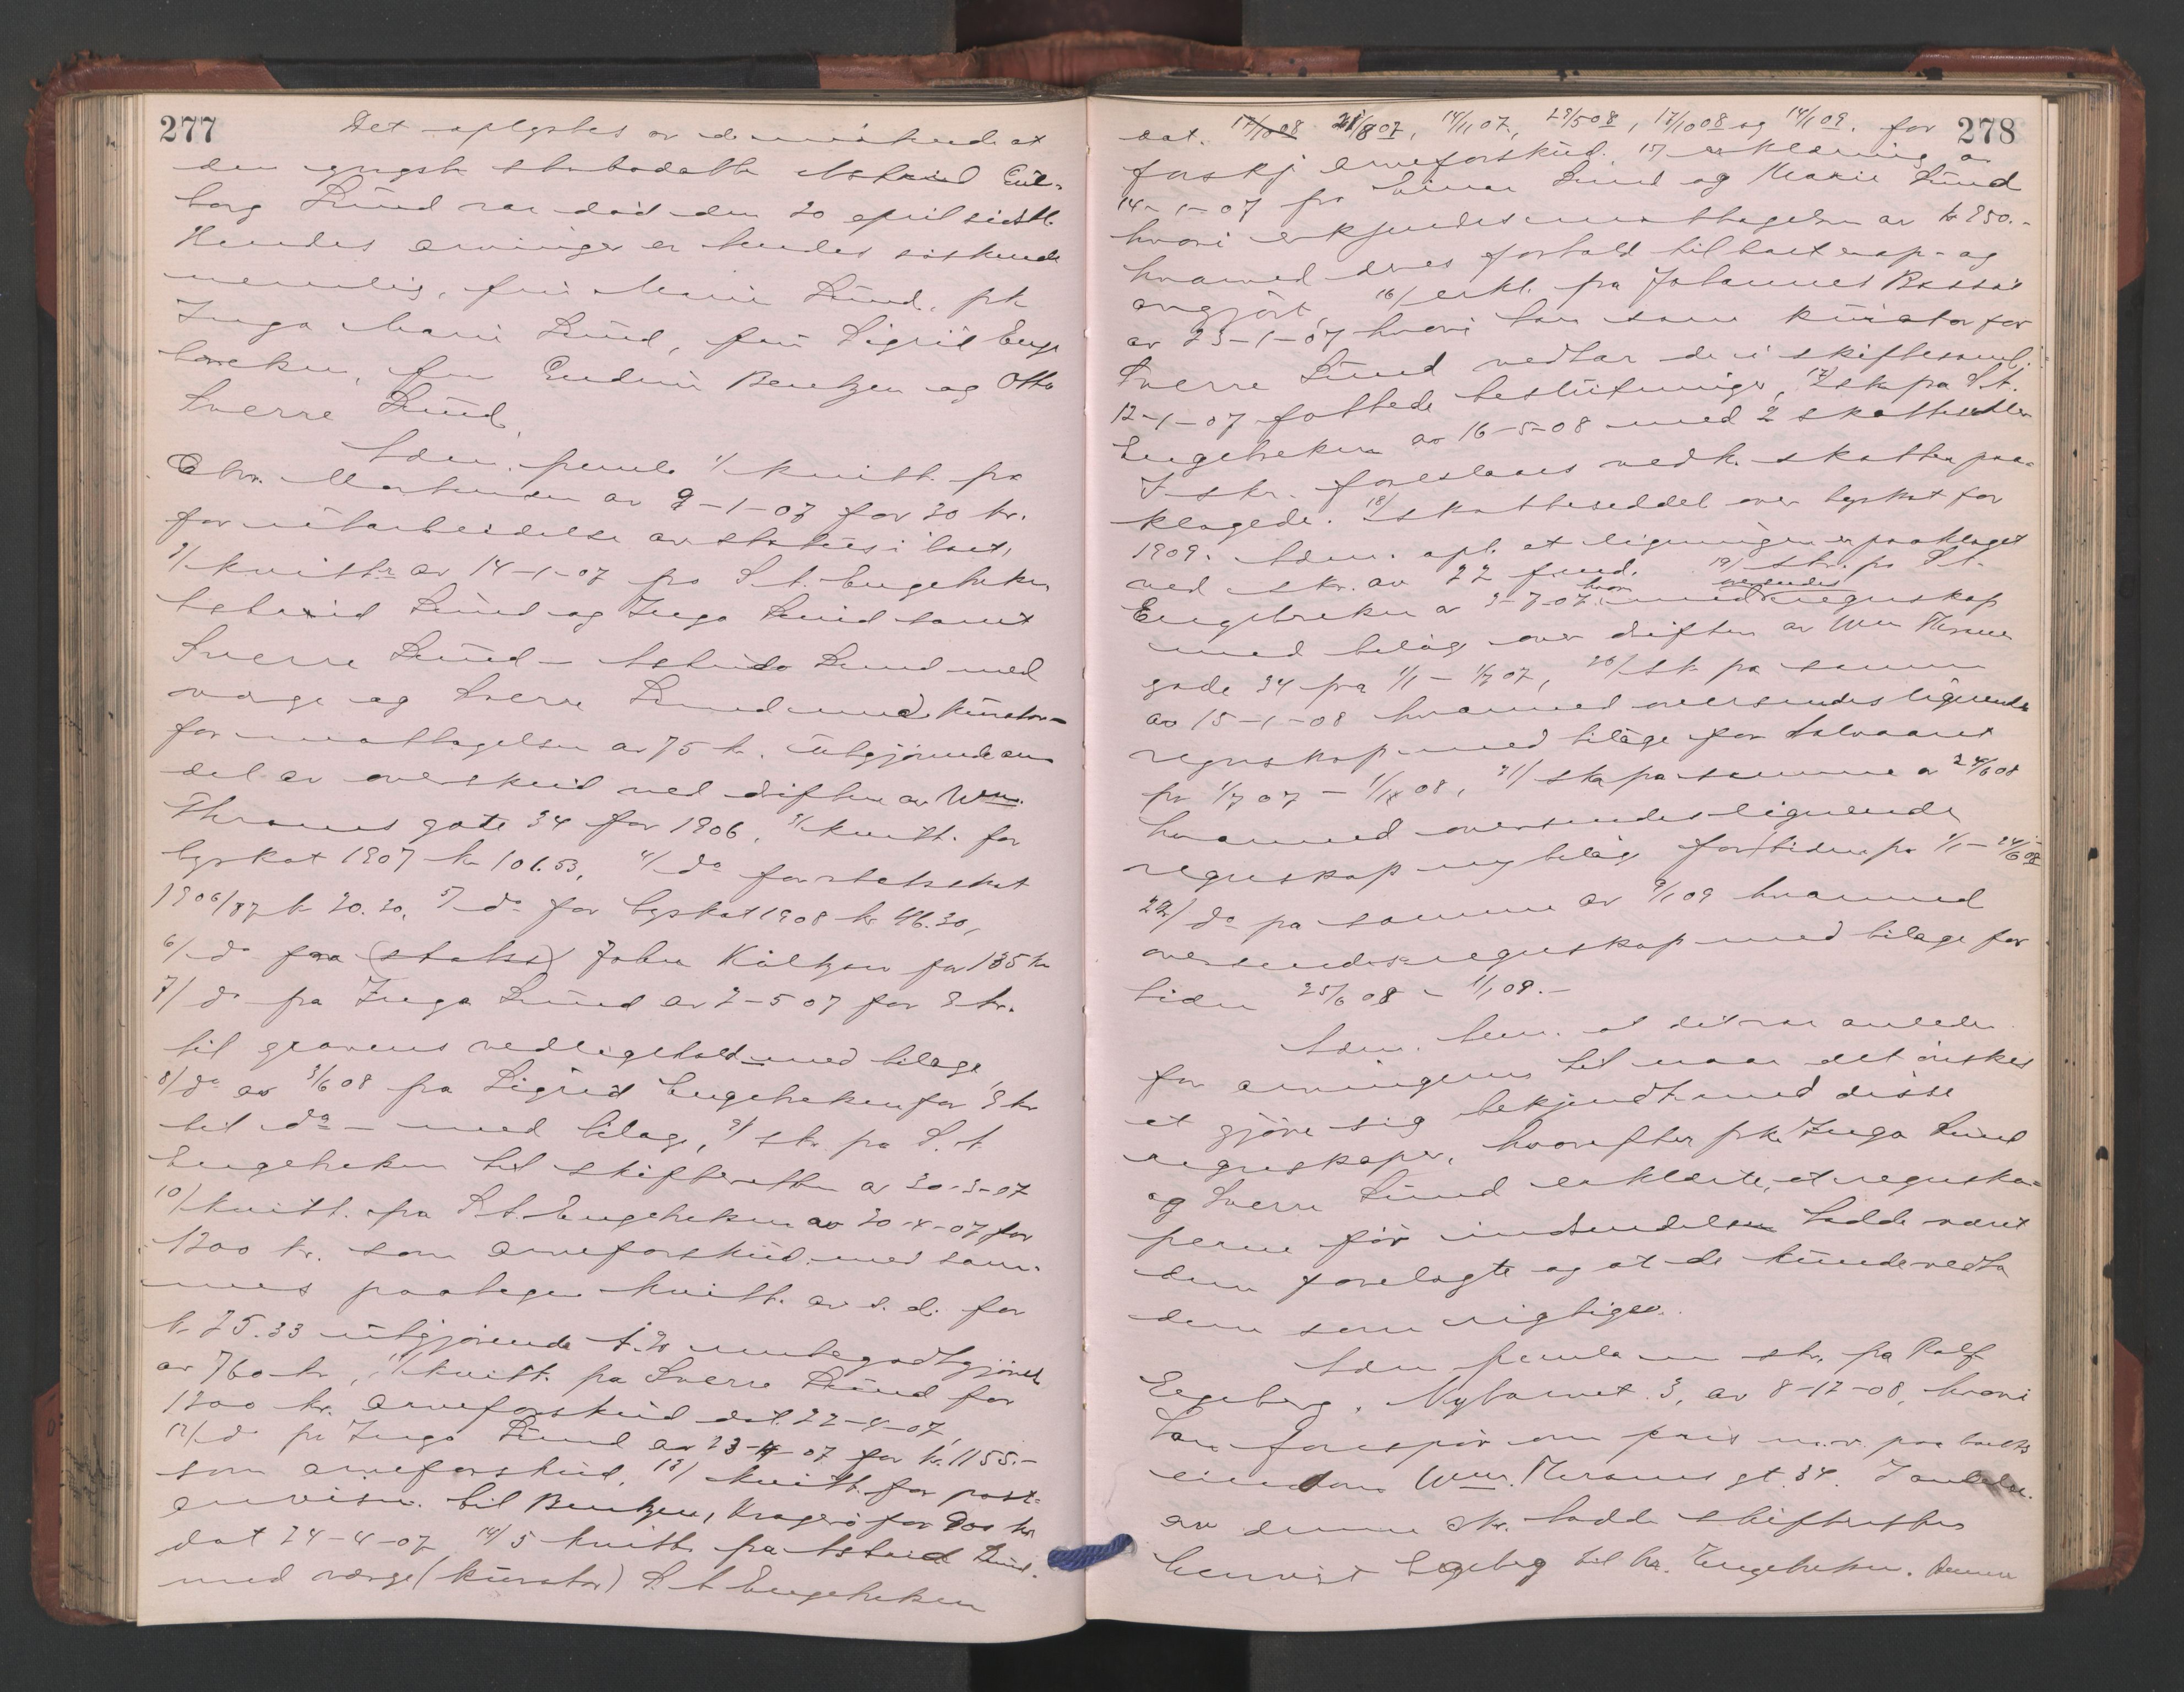 277
Det oplystes av de møtende at
den yngste stubodatter Astrid Eid-
borg Lund var død den 20 april sidstl.
Hendes arvinger er hendes søskende
nemlig, fru Marie Lund, frk
Inga Marie Lund, fru Sigrid Enge
bretsen, fru Bentzen og Otto
Sverre Lund.
Adm. freml. 1/ kvitt. fra
Chr. Mortensen av 9-1-07 for 30 kr.
for utarbeidelse av status i boet,
2/ kvittr av 14-1-07 fra S. A. Engebretsen
Astrid Lund og Inga Lund samt
Sverre Lund - Astrid Lund med
verge og Sverre Lund med kurator -
for mottagelsen av 75 kr. utgjørende an
del av overskud ved driften av Wm.
Thranes gate 34 for 1906, 3/ kvitt. for
byskat 1907 kr 101.53, 4/ do for statsskat
1906/07 kr 20.20, 5/ do for byskat 1908 kr 46.30,
6/ do fra (statss) Johs Kultzow for 135 kr
7/ do fra Inga Lund av 2-5 07 for 8 kr.
til gravens vedligehold med bilage,
8/ do av 3/6 08 fra Sigrid Engebretsen for 8 kr
til do - med bilage, 9/ skr. fra S. A.
Engebretsen til skifteretten av 20-3-07
10/ kvitt. fra S. A. Engebretsen av 20-4-07 for
1200 kr. som arveforskud med sam-
mes paategn kvitt. av s. d. for
kr 25.33 utgjørende
av 760 kr, 11/ kvitt. fra Sverre Lund for
1200 kr. arveforskud dat. 22-4-07,
12/ do fra Inga Lund av 23-4-07 for kr. 1155.-
som arveforskud, 13/ kvitt. for post-
anvisn. til Bentzen, Kragerø for 900 kr
dat 24-4-07 14/ 5 kvitt. fra Astrid Lund.
med verge (kurator) S. A. Engebretsen
278
dat. 17/10 08 21/8 07, 14/11 07, 29/5 08, 17/10 08 og 14/1 09. for
forskj arveforskud. 15/ erklæring av
14-1-07 fra Einar Lund og Marie Lund
hvori erkjendes mottagelsen av kr 850.-
hvormed deres forhold til boet er op- og
avgjort, 16/ erkl. fra Johannes
av 23-1-07 hvori han som kurator for
Sverre Lund vedtar de i skiftesaml.
12-1-07 fattede beslutninger, 17/ skr fra S. A.
Engebretsen av 16-5-08 med 2 skattesedler
I skr. foreslaaes vedk. skatten paa-
klagede. 18/ skatteseddel over byskat for
1909. Adm. opl. at ligningen er paaklaget
ved skr. av 22 19/ skr. fra S. A.
Engebretsen av 3-7-07 hvor med oversendes regnskap
med bilag over driften av Wm Thranes
gade 34 fra 1/1 - 1/7 07, 20/ skr fra samme
av 15-1-08 hvormed oversendes lignende
regnskap med bilage for halvaaret
fra 1/7 07 - 1/1 08, 21/ skr fra samme av 24/6 08
hvormed oversendes lignende
regnskap m/ bilag for tiden fra 1/1 - 24/6 08
22/ do fra samme av 9/1 09 hvormed
oversendes regnskap med bilage for
tiden 25/6 08 - 1/1 09.-
Adm. bem. at det var anledn.
for arvingerne til naar det ønskes
at gjøre sig bekjendt med disse
regnskaper, hvorefter frk. Inga Lund
og Sverre Lund erklærte, at regnska-
perne før indsendelsen hadde været
dem forelagte og at de kunde vedta
dem som rigtige.
Adm freml en skr. fra Ralf
Egeberg, Nyhavnet 3, av 8-12-08, hvori
han forespør om pris m.v. paa boets
eiendom Wm. Thranes gt. 34. I anledn.
av denne skr. hadde skifteretten
henvist Egeberg til hr. Engebretsen. Denne